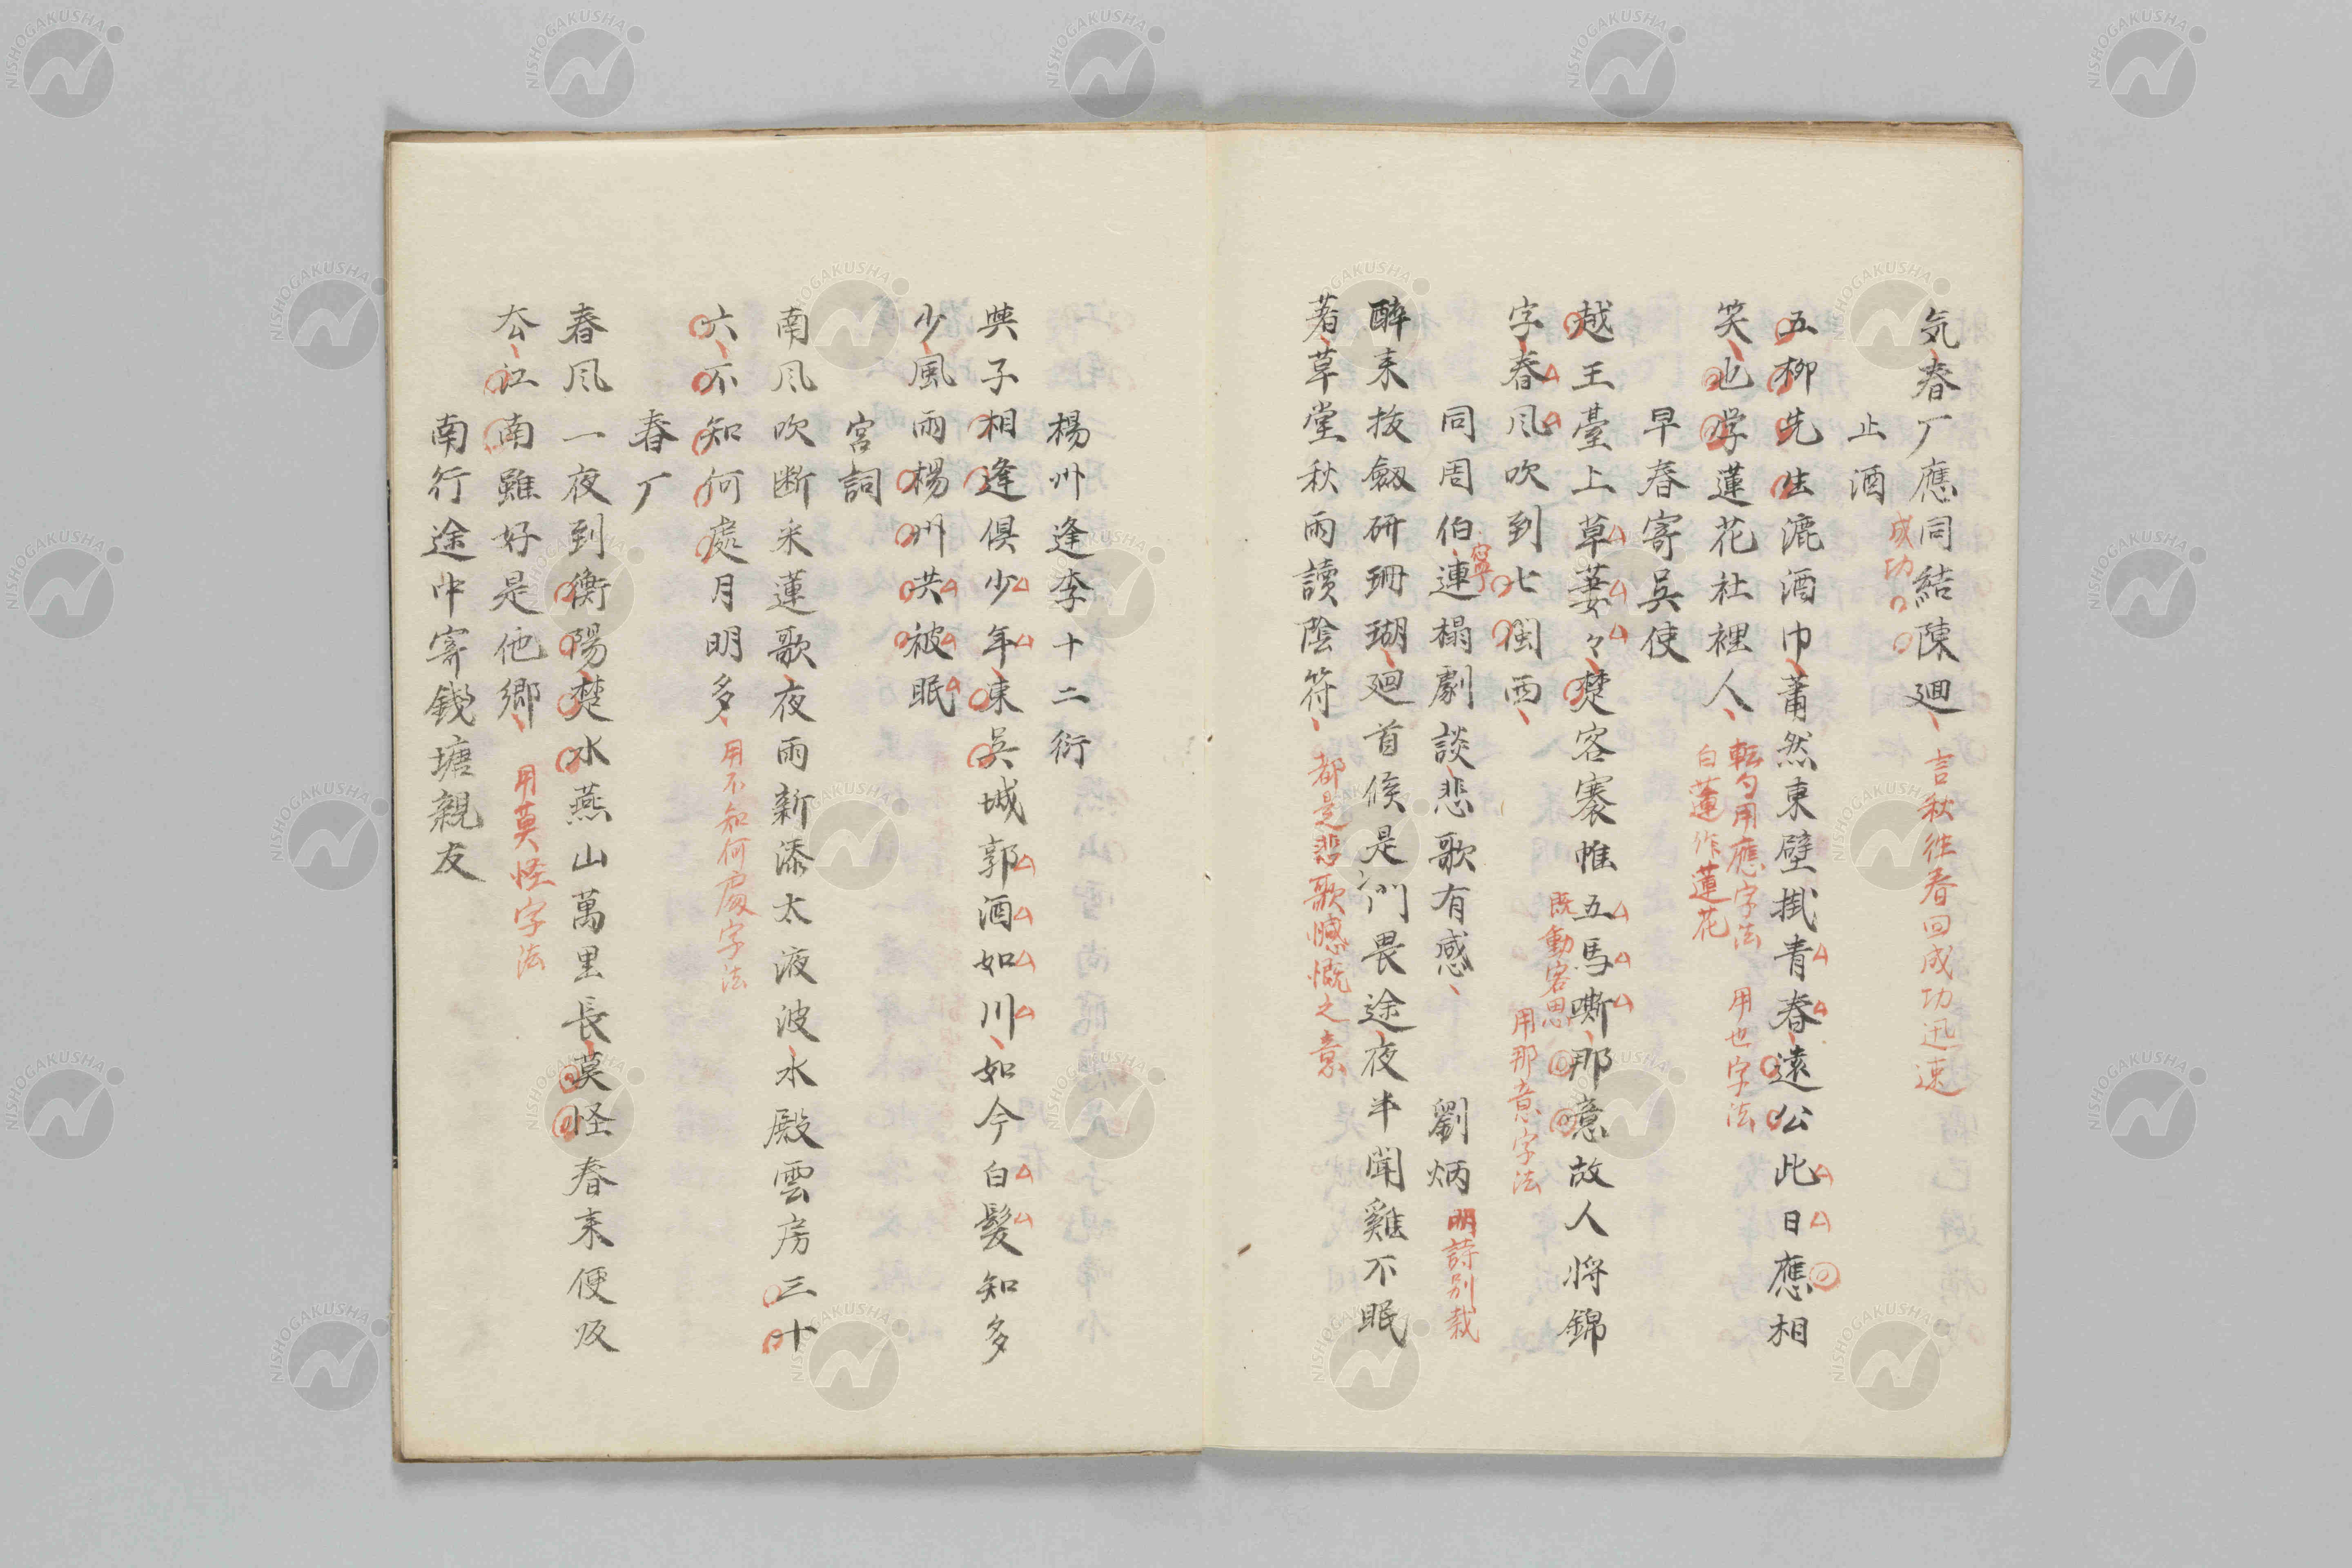 気春厂應同結陳廻 言秋往春回成功迅速
成功
止酒
五柳先生漉酒巾莆然東壁掛青春遠公此日應相
笑也学蓮花社裡人 転句用應字法 用也字法
白蓮作蓮花
早春寄吳使
越王臺上草萋々楚客褰帷五馬嘶那意故人将錦
既動客思
字春风吹到七閩西 用那意字法
同周伯連榻劇談悲歌有感 劉炳 明詩別裁
寧
醉来拔劔研珊瑚廻首候是門畏途夜半聞雞不眠
著草堂秋雨讀陰符 都是悲歌憾慨之意
楊州逢李十二衍
與子相逢倶少年東吳城郭酒如川如今白髮知多
少風雨楊州共被眠
宮詞
南风吹断采蓮歌夜雨新添太液波水殿雲房三十
六不知何處月明多 用不知何處字法
春厂
春风一夜到衡陽楚水燕山萬里長莫怪春来便㱕
厺江南雖好是他鄉 用莫怪字法
南行途中寄錢塘親友
NISHOGAKUSHA